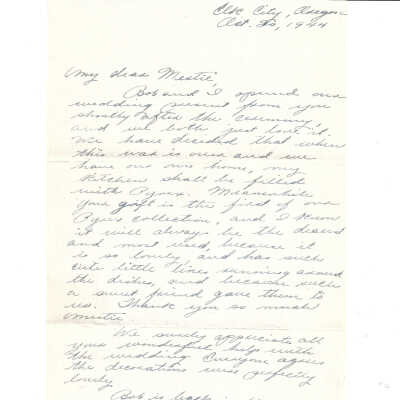 Elk City, Oregon
Oct. 30, 1944
My dear Mestie,
Bob and I opened our
wedding present from you
shortly after the ceremony,
and we both just love it.
We have decided that when
this war is over and we
have our own home, my
kitchen shall be filled
with Pyrex. Meanwhile
your gift is the first of our
Pyrex collection, and I know
it will always be the dearest
and most used, because it
is so lovely, and has such
cute little lines running around
the dishes, and because such
a sweet friend gave them to
us. Thank you so much
Mestie
We surely appreciate all
your wonderful help with
the wedding. Everyone agrees
the decorations were perfectly
lovely.
Bob is